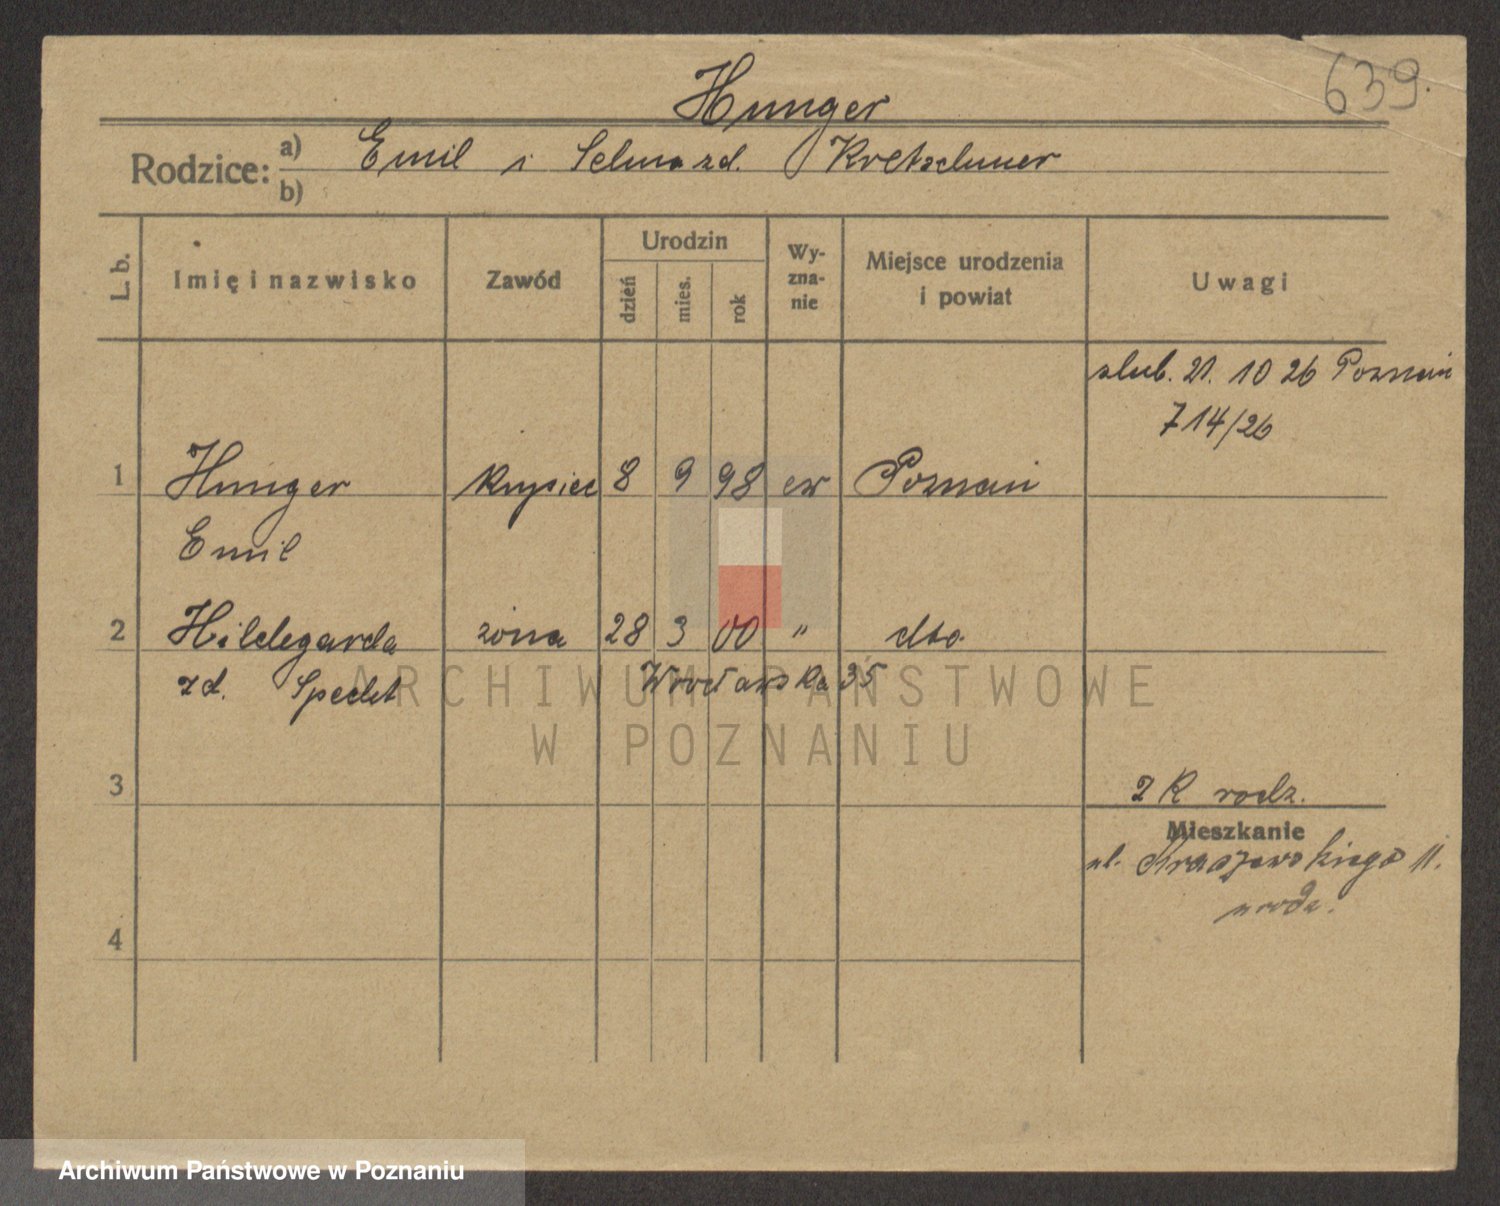 639.
Hunger
Rodzice: a) Emil i Selma zd. Kretschmer
b)
L. b. Imię i nazwisko Zawód Urodzin dzień mies. rok Wy-zna-nie Miejsce urodzenia i powiat Uwagi
slub. 21. 10 26 Poznań
714/26
1 Hunger kupiec 8 9 98 ew Poznań
Emil
2 Hildegarda żona 28 3 00 " dto
zd. Specht Wrocławska 35
ARCHIWUM PAŃSTWOWE
W POZNANIU
3 2 K rodz.
Mieszkanie
ul. Kraszewskiego 11.
4
Archiwum Państwowe w Poznaniu